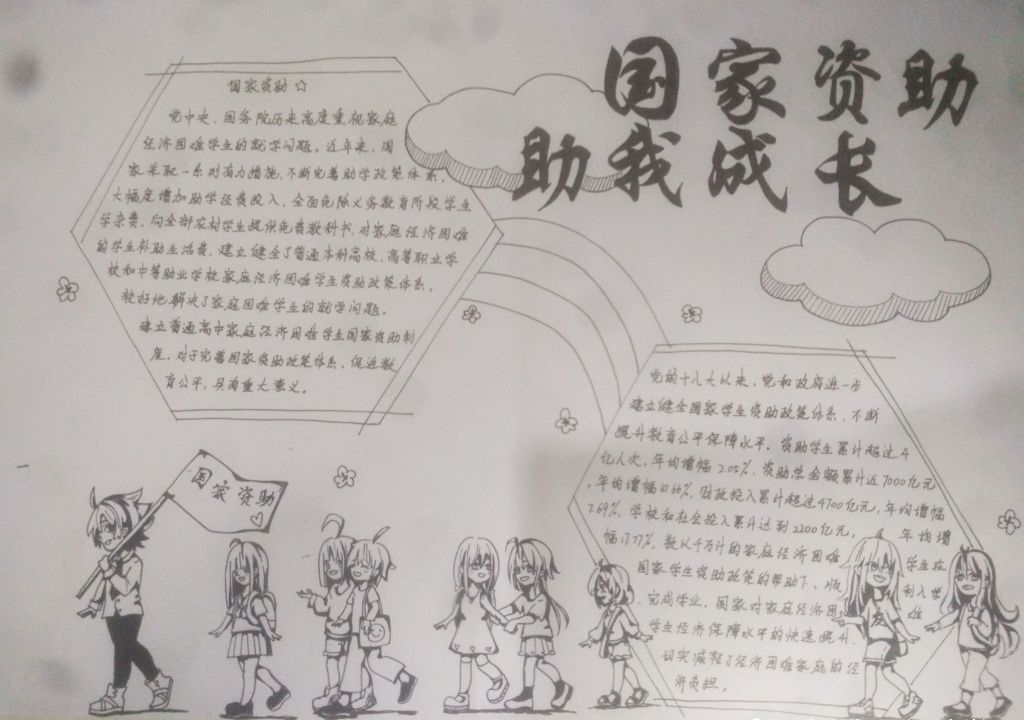 国家资助
助我成长
国家资助☆
党中央、国务院历来高度重视家庭
经济困难学生的就学问题。近年来，国
家采取一系列有力措施，不断完善助学政策体系，
大幅度增加助学经费投入，全面免除义务教育阶段学生
学杂费，向全部农村学生提供免费教科书，对家庭经济困难
的学生补助生活费，建立健全了普通本科高校、高等职业学
校和中等职业学校家庭经济困难学生资助政策体系，
较好地解决了家庭困难学生的就学问题。
建立普通高中家庭经济困难学生国家资助制
度，对于完善国家资助政策体系，促进教
育公平，具有重大意义。
党的十八大以来，党和政府进一步
建立健全国家学生资助政策体系，不断
提升教育公平保障水平。资助学生累计超过4
亿人次，年均增幅2.05%，资助总金额累计近7000亿元
，年均增幅10.66%，财政投入累计超过4700亿元，年均增幅
7.69%，学校和社会投入累计达到2200亿元，年均增
幅17.77%，数以千万计的家庭经济困难学生在
国家学生资助政策的帮助下，顺利入学
、完成学业，国家对家庭经济困难
学生经济保障水平的快速提升，
切实减轻了经济困难家庭的经
济负担。
国家资助